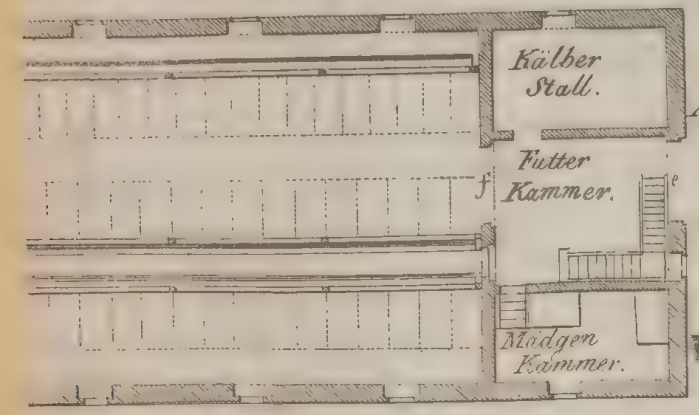 Kälber
Stall.
Futter
Kammer.
f
e
Mädgen
Kammer.